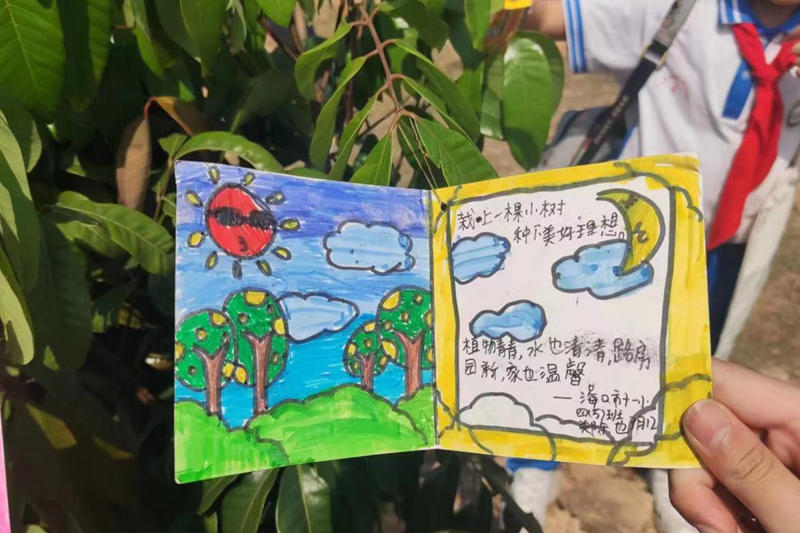 栽上一棵小树
种下美好理想。
植物青青,水也清清,路旁
园新,家也温馨
——海口市十一小
四(5)班